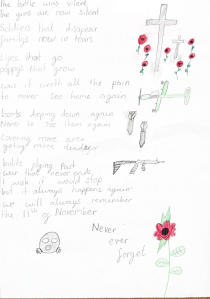 the battle was vilent
the guns are now silent
Soldiers that disapear
familys now in tears
lifes that go
poppys that grow
was it worth all the pain
to never see home again
bombs droping down again
Never to see them again
Covering more area
geting more deadlear
bullits flying Past
war that never ends
I wish it would stop
but it always happens again
we will always remember
the 11th of November
Never
ever
forget